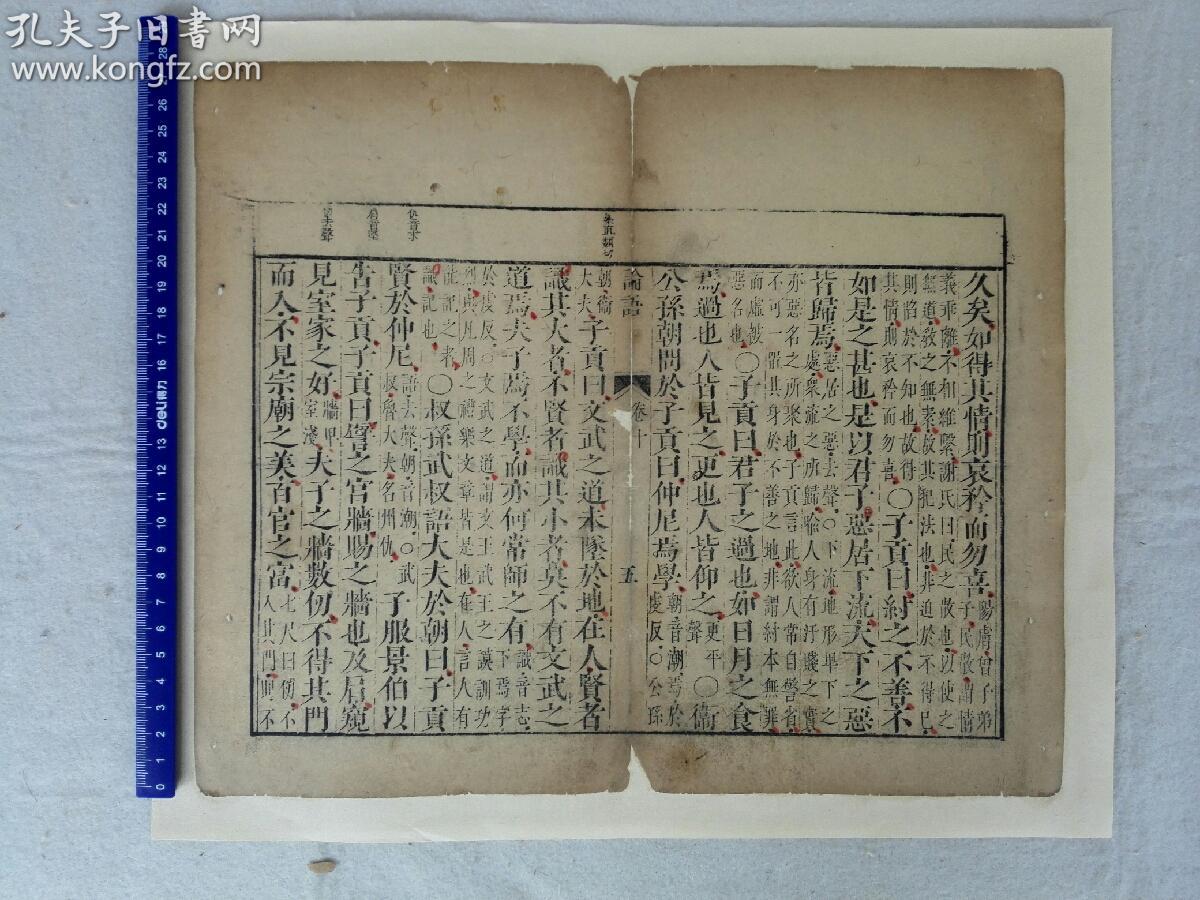 孔夫子旧書网
www.kongfz.com
deli得力
久矣如得其情則哀矜而勿喜
陽膚曾子弟
子民散謂情
義乖離不相維繫謝氏曰民之散也以使之
無道敎之無素故其犯法也非迫於不得已
則陷於不知也故得
其情則哀矜而勿喜
○子貢曰紂之不善不
如是之甚也是以君子惡居下流天下之惡
皆歸焉
惡居之惡去聲○下流地形卑下之
處衆流之所歸喻人身有汙賤之實
亦惡名之所聚也子貢言此欲人常自警省
不可一置其身於不善之地非謂紂本無罪
而虛被
惡名也
○子貢曰君子之過也如日月之食
焉過也人皆見之更也人皆仰之
更平
聲
○衞
公孫朝問於子貢曰仲尼焉學
朝音潮焉於
虔反○公孫
論語
卷十
五
朝衞
大夫
子貢曰文武之道未墜於地在人賢者
識其大者不賢者識其小者莫不有文武之
道焉夫子焉不學而亦何常師之有
識音志
下焉字
於虔反○文武之道謂文王武王之謨訓功
烈與凡周之禮樂文章皆是也在人言人有
能記之者
識記也
○叔孫武叔語大夫於朝曰子貢
賢於仲尼
語去聲朝音潮○武
叔魯大夫名州仇
子服景伯以
告子貢子貢曰譬之宮牆賜之牆也及肩窺
見室家之好
牆卑
室淺
夫子之牆數仞不得其門
而入不見宗廟之美百官之富
七尺曰仞不
入其門則不